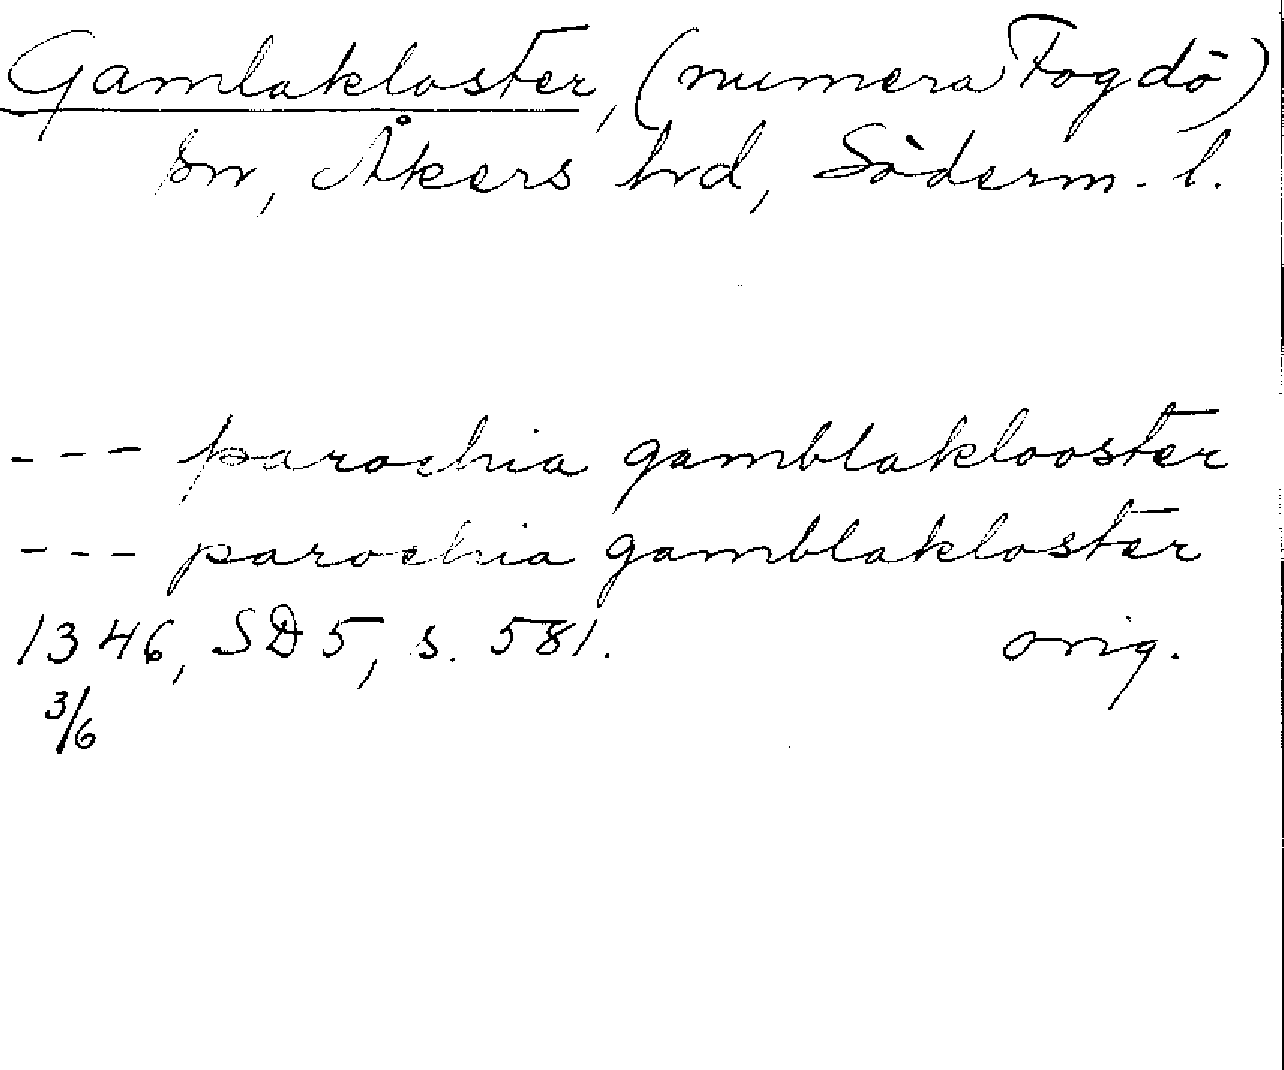 Gamlakloster, (numera Fogdö)
sn, Åkers hrd, Söderm. l.
--- parochia gamblaklooster
--- parochia gamblakloster
1346, SD 5, s. 581. orig.
3/6